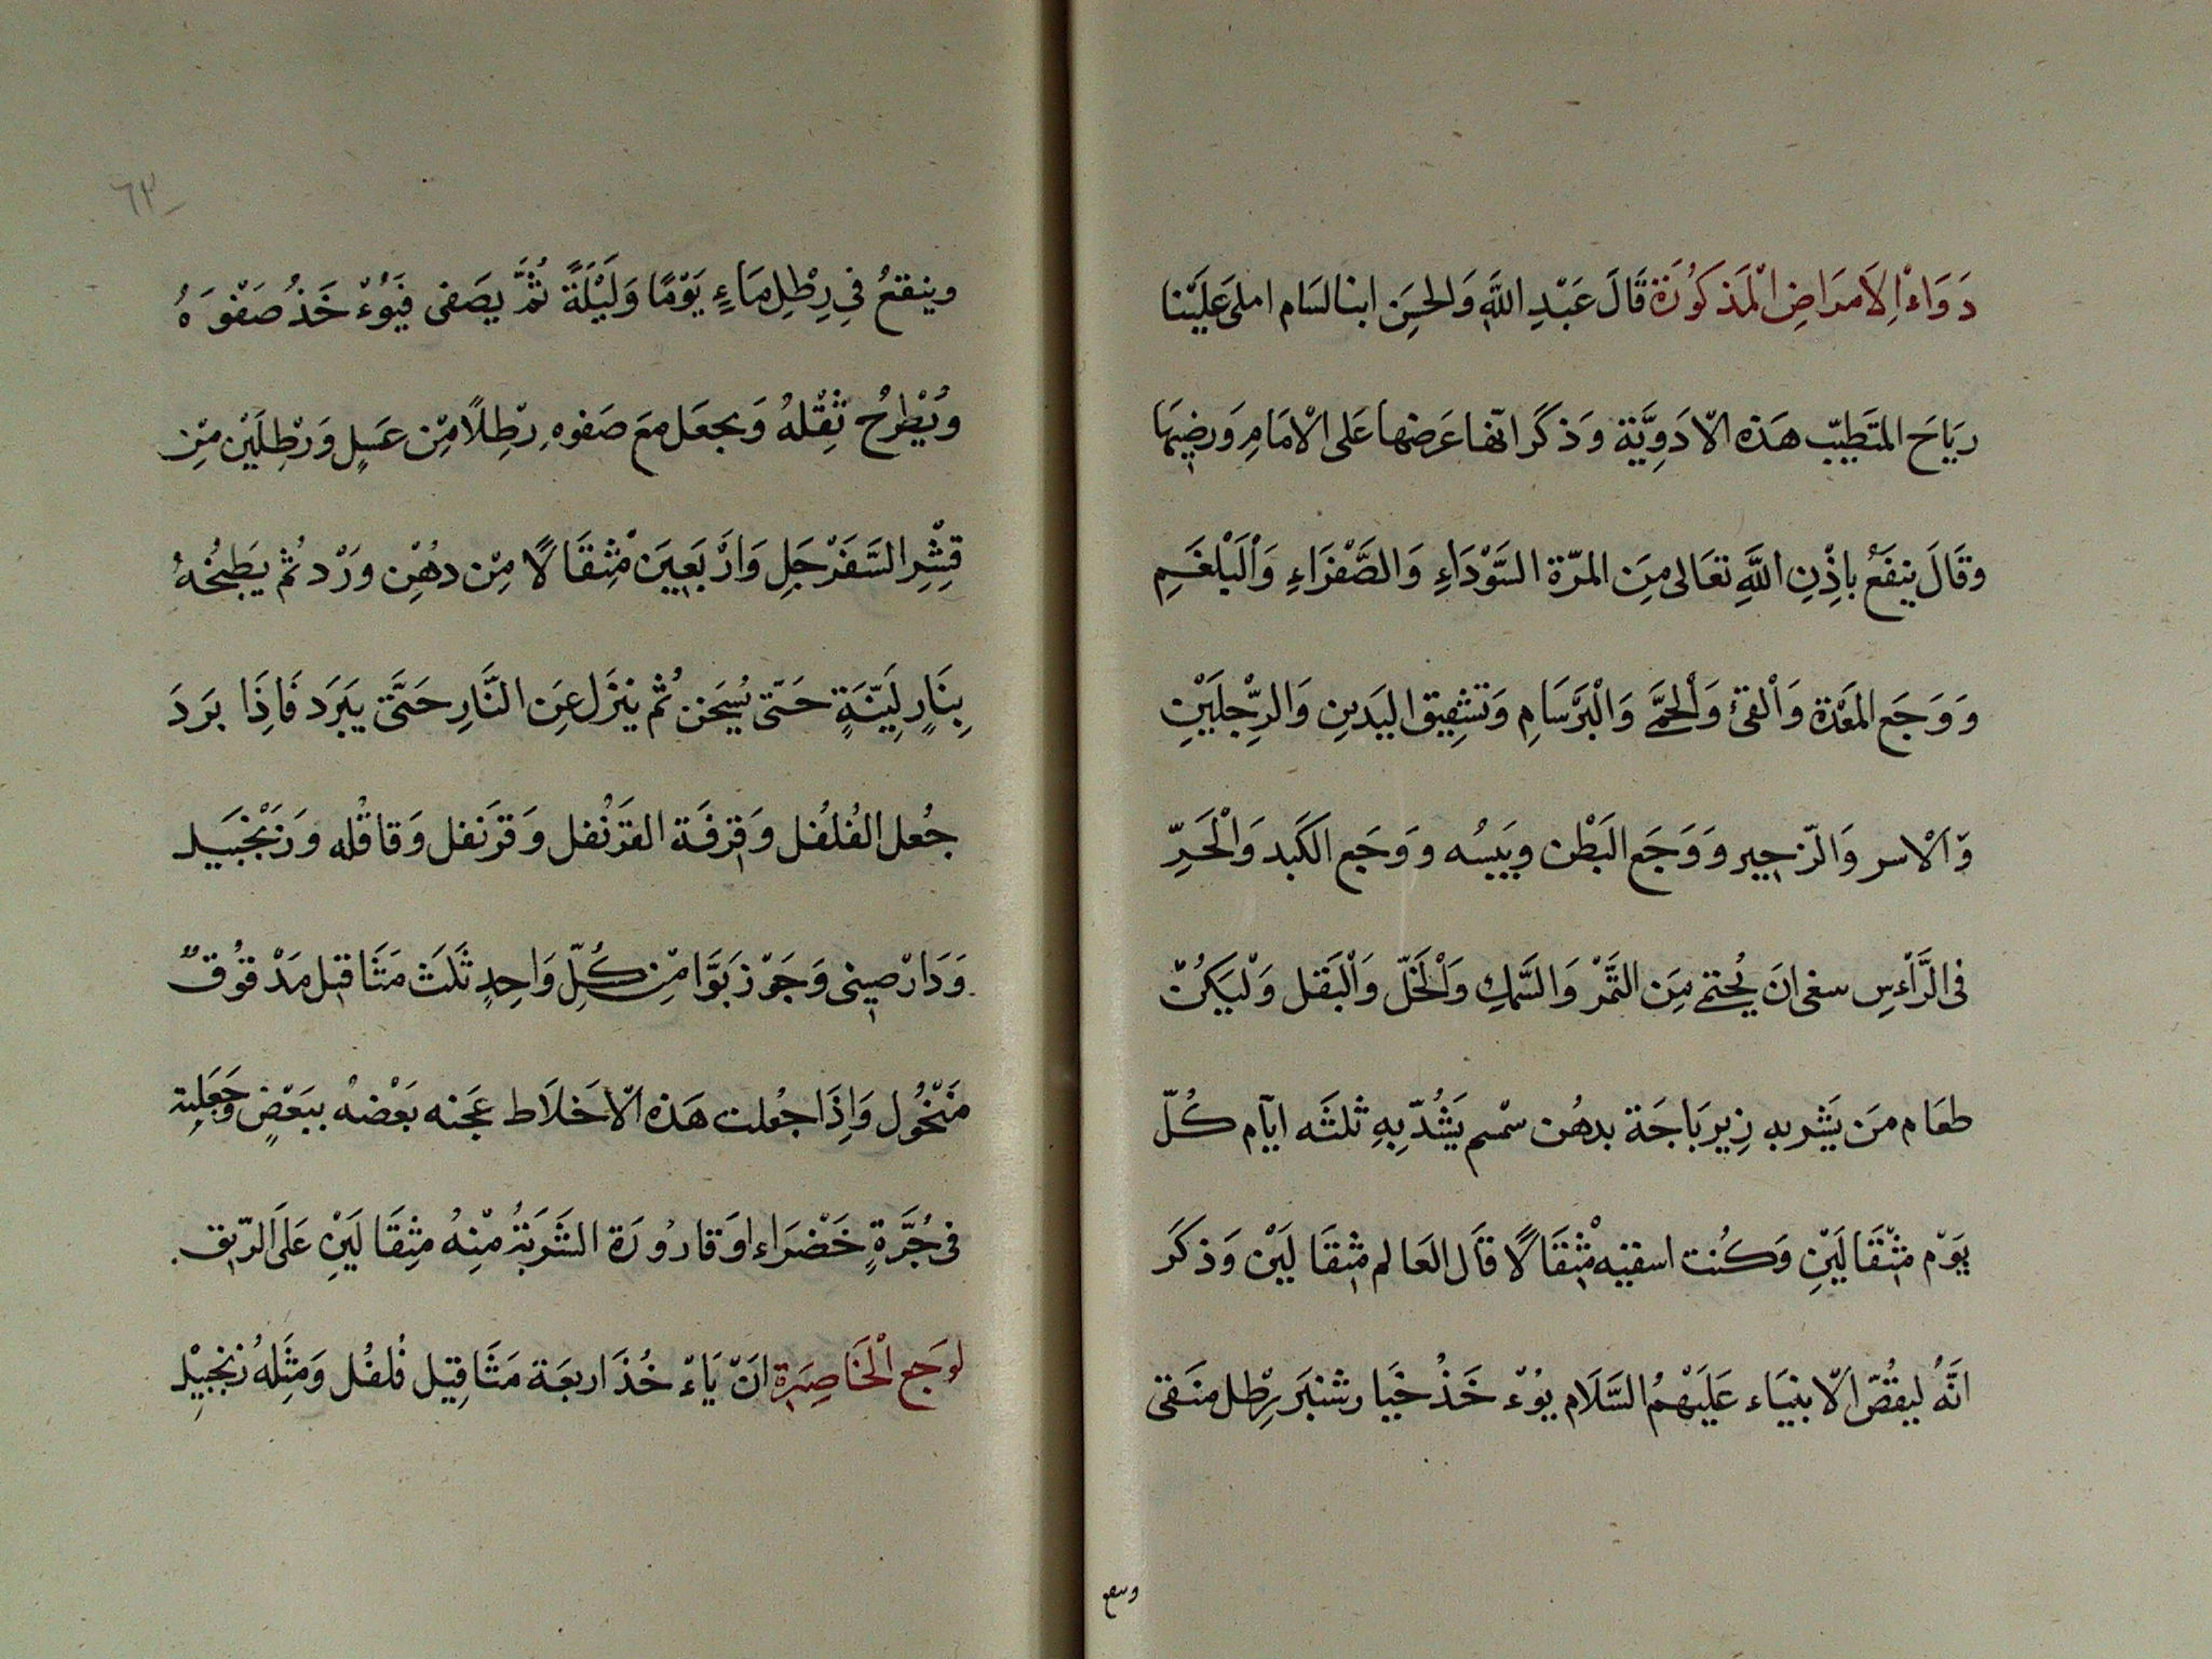 دَوَاءُ الِاَمرَاضِ الْمَذكَوُرَة قَالَ عَبْدِ اللَّهِ وَالحسَِن ابنا لسَام املى عَلَيْنا
ريَاحَ المتَطبّب هَذه الاَدَوِيَّة وَذكَرَ انّها عَرَضها عَلى الْامَامِ وَرضِيَها
وقَالَ ينفَعُ باِذْنِ اللَّهِ تعَالى مِنَ المرّة السَّوْدَاءِ وَالصَّفْرَاءِ وَاْلَبْلغَمِ
وَوَجَع المَعْدَة وَاْلقئْ وَاْلحُمَّى وَالْبَرْسَامِ وَتشْقِيق اليَدينِ وَالرِّجلَيْنِ
وَالْاسر وَالزّحِير وَوَجَع البَطْن ويَبسُه وَوَجَع الكَبد وَالْحَرِّ
فى الرَّأسِ سغى انَ يُحتمى مِنَ التَّمْر وَالسَّمكِ وَاْلخَلّ وَاْلبَقل وَلْيَكُنْ
طعَام مَن يَشربه زِيربَاجَة بدهُن سْمسم يَشْربهِ ثلثَه ايّام كُلّ
يَوْم مثْقَالَيْنِ وَكنُت اسقيْه مْثقَالًا قَال العَالم مثقَالَيْنْ وَذكَرَ
انَّهُ لبعْضِ الاَنبيَاء عَلَيَهْمُ السَّلَام يؤُء خَذُ خيَارشنبَر رِطل منَقى
وينقعُ
وينقعُ فِى رِطْلِ مَاءٍ يَوْمًا وَلَيْلَةً ثُمَّ يصَفى فَيَوُءْ خَذُ صَفْوَهُ
ويُطْرحُ ثِقْلهُ وَيجعَل مَعَ صَفوه رِطلاً مّن عَسَلٍ وَرْطِلَيْن مّنِ
قِشْرِ السَّفَرْجَلِ وَارْبَعيَن مْثِقَالًا مِنْ دهُنْ وَرْد ثُم يَطبخُهُ
بِنَارٍ لَيّنَةٍ حَتّى يُسَخن ثُم ينزَل عَنِ النَّارِ حَتَّى يَبَرد فَاذَِا برَدَ
جُعل الفُلفُل وَقرفَة القَرنْفل وَقرَنفل وَقاقُله وَزَنْجَبَيل
وَدَارْصِينى وَجَوْزَبَوَّا مّنِ كُلِّ وَاحِدٍ ثَلَث مَثَاقيل مَدْقوُقٌ
مَنْخُول وَاِذَا جعُلت هَذه الاَخلَاط عَجنه بَعْضهُ ببَعْضٍ وَجَعَلته
فى جُرَّةٍ خَضْرَاء اوَقَارُورَة الشَربَةُ مْنِهُ مِثقَالَيْنِ عَلَى الرّيق
لوَجَع الْخَاصِرَة انَ يَاءْ خُذَ اربعَة مَثَاقِيل فُلفُل وَمثِلهُ زنجبِيْل
٦٣